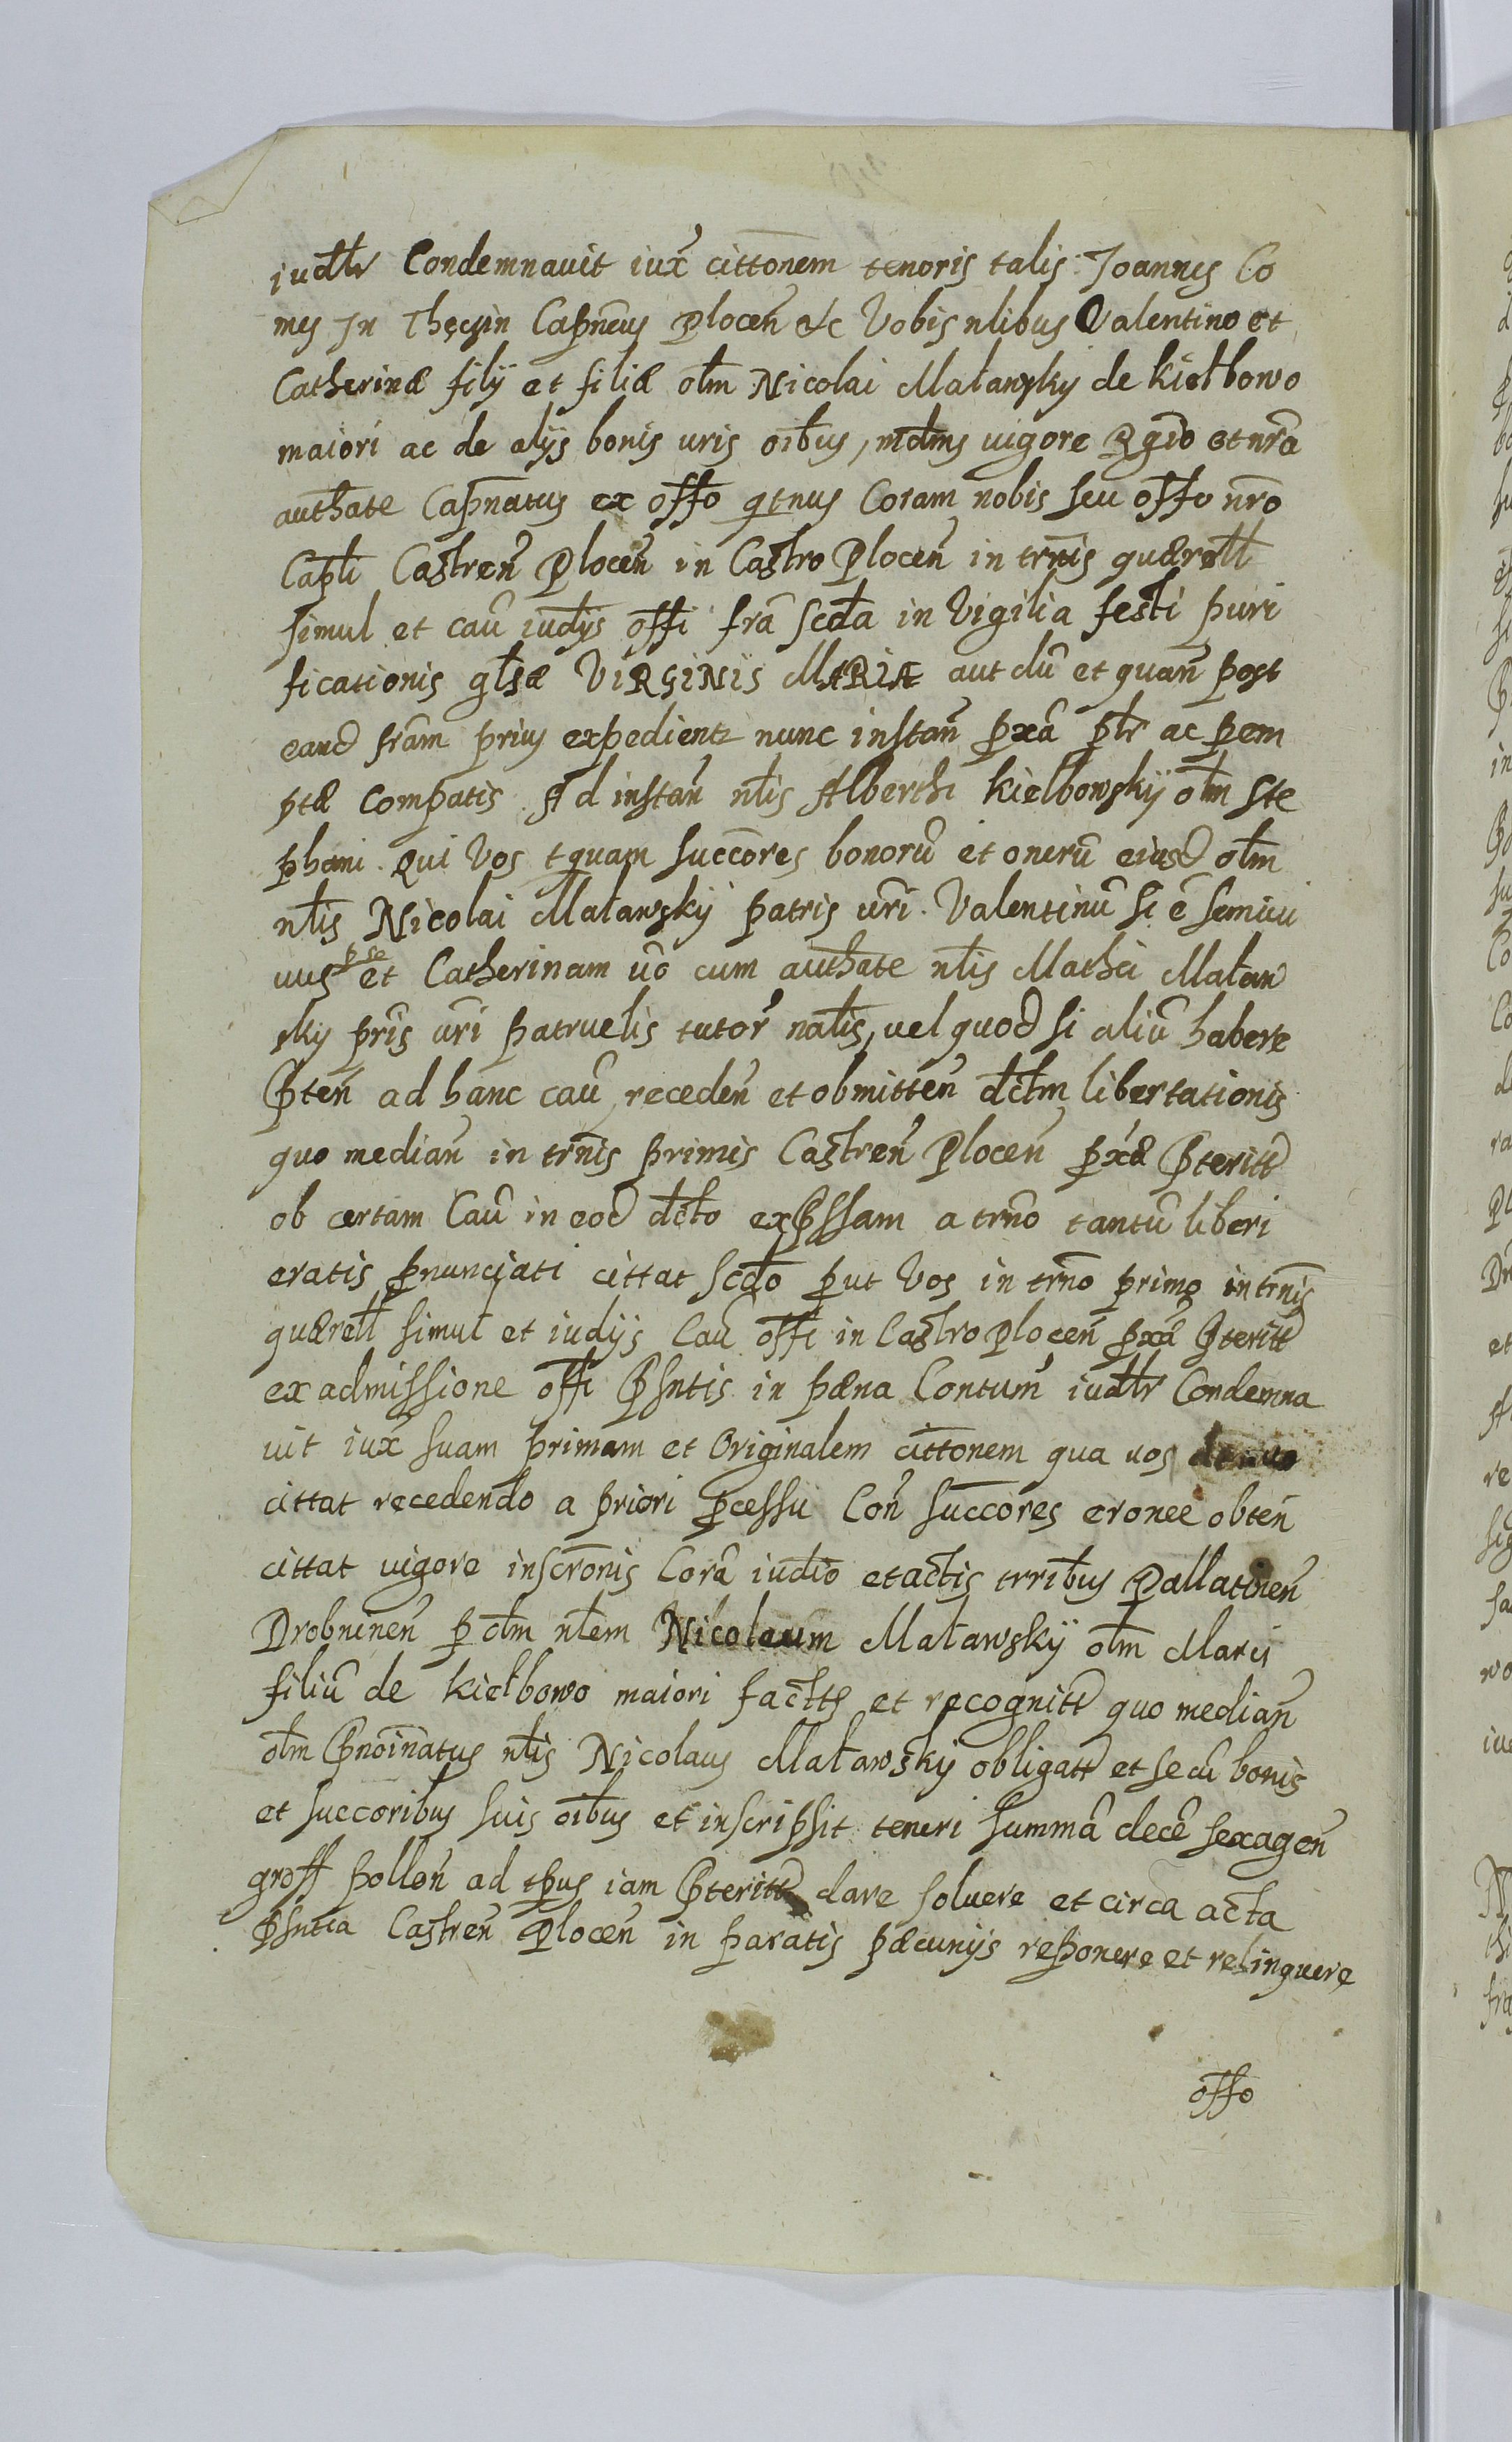 iudtr Condemnauit iux̃ cittõnem tenoris talis Joannes Co
mes In Thęczin Capñeus Plocen̄ etc Vobis nlibus Valentino et
Catherinæ filÿ et filiæ olm Nicolai Maławsky de kiełbowo
maiori ac de alÿs bonis vris oĩbus, mdms uigore Rgio et nr̃a
autħate Capñatus ex offo qtnus Coram nobis seu offo nr̃o
Capli Castren̄ Plocen̄ in Castro Plocen̄ in trñis quærell
simul et cau iudÿs offi fr̃a scda in Vigilia festi puri
ficationis glsæ ViRGiNis MARIÆ aut dũ et quan̄ post
eand fr̃am prius expedient nunc instan̄ pxã ptr ac pem
ptæ compatis Ad instan̄ nlis Alberthi kiełbowskÿ olm Ste
phani Qui Vos tquam succores bonorũ et onerũ eiusd olm
nlis Nicolai Maławskÿ patris vr̃i Valentinũ si ẽ semiui
uus p se et Catherinam ũo cum autħate nlis Mathei Maław
sky pr̃is vr̃i patruelis tutor̃ natlis, uel quod si aliũ habere
Pten̄ ad hanc cau receden̄ et obmitten̄ dctm libertationis
quo median̄ in trñis primis Castren̄ Plocen̄ pxæ Pterittd
ob certam Cau in eod dcto exPssam a trño tantũ liberi
eratis pnunciati cittat scdo put Vos in trño primo in trñis
quærell simul et iudÿs Cau offi in Castro Plocen̄ pxã Pteritt
ex admissione offi Psntis in pæna Contum̄ iudtr Condemna
uit iux̃ suam primam et Originalem cittõnem qua uos denuo
cittat recedendo a priori pcessu Con̄ succores eronee obten̄
cittat uigore inscrõnis Corã iudio et actis trribus Pallatinen̄
Drobninen̄ p olm nlem Nicolaum Maławskÿ olm Marci
filiũ de kiełbowo maiori factæ et recognitt quo median̄
olm Pnoĩnatus nlis Nicolaus Maławskÿ obligatt et se cũ bonis
et succoribus suis oĩbus et inscripsit teneri summã decẽ sexagen̄
groff pollon̄ ad tpus iam Pteritt dare soluere et circa acta
Psntia Castren̄ Plocen̄ in paratis pæcunÿs reponere et relinquere
offo